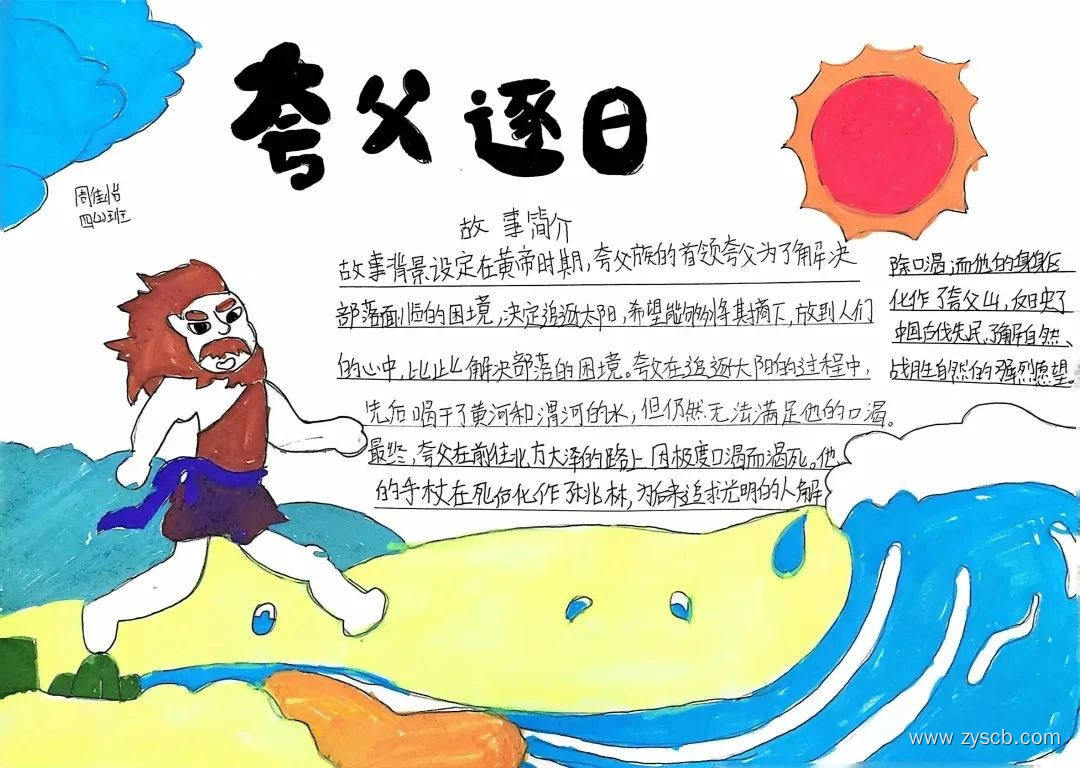 夸父逐日
周佳怡
四(2)班
故事简介
故事背景设定在黄帝时期,夸父族的首领夸父为了解决
部落面临的困境,决定追逐太阳,希望能够将其摘下,放到人们
的心中,以此解决部落的困境。夸父在追逐太阳的过程中,
先后喝干了黄河和渭河的水,但仍然无法满足他的口渴。
最终,夸父在前往北方大泽的路上因极度口渴而渴死。他
的手杖在死后化作了桃林,为后来追求光明的人解
除口渴,而他的身躯
化作了夸父山,反映了
中国古代先民了解自然、
战胜自然的强烈愿望。
www.zyscb.com